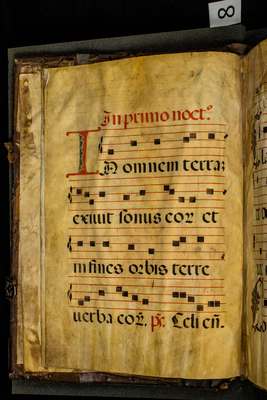 8
In primo noct.º
IN omnem terrã:
exiuit sonus eoꝝ et
in fines orbis terre
uerba eoꝝ. ps. Celi eñ.